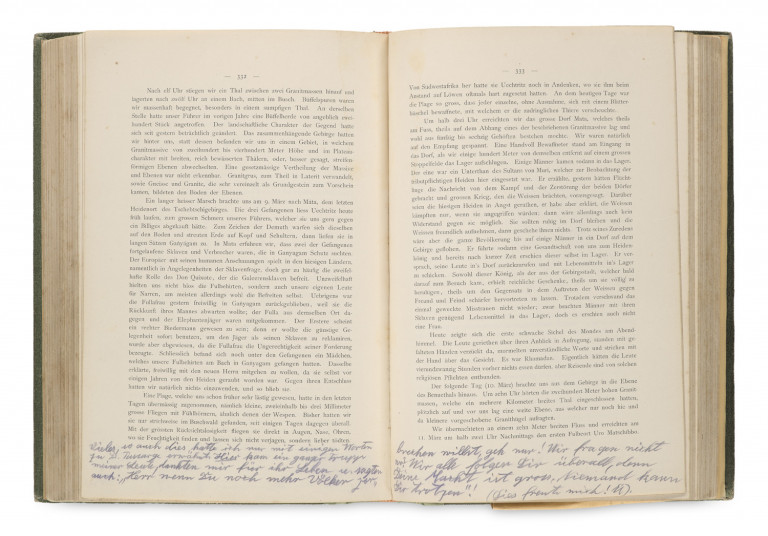 — 332 —
Nach elf Uhr stiegen wir ein Thal zwischen zwei Granitmassen hinauf und
lagerten nach zwölf Uhr an einem Bach, mitten im Busch. Büffelspuren waren
wir massenhaft begegnet, besonders in einem sumpfigen Thal. An derselben
Stelle hatte unser Führer im vorigen Jahre eine Büffelherde von angeblich zwei-
hundert Stück angetroffen. Der landschaftliche Charakter der Gegend hatte
sich seit gestern beträchtlich geändert. Das zusammenhängende Gebirge hatten
wir hinter uns, statt dessen befanden wir uns in einem Gebiet, in welchem
Granitmassen von zweihundert bis vierhundert Meter Höhe und im Plateau-
charakter mit breiten, reich bewässerten Thälern, oder, besser gesagt, streifen-
förmigen Ebenen abwechselten. Eine gesetzmässige Verteilung der Massive
und Ebenen war nicht erkennbar. Granitgrus, zum Theil in Laterit verwandelt,
sowie Gneisse und Granite, die sehr vereinzelt als Grundgestein zum Vorschein
kamen, bildeten den Boden der Ebenen.
Ein langer heisser Marsch brachte uns am 9. März nach Mata, dem letzten
Heidenort des Tschetschigebirges. Die drei Gefangenen liess Uechtritz heute
früh laufen, zum grossen Schmerz unseres Führers, welcher sie uns gern gegen
ein Billiges abgekauft hätte. Zum Zeichen der Demuth warfen sich dieselben
auf den Boden und streuten Erde auf Kopf und Schultern, dann liefen sie in
langen Sätzen Ganyagam zu. In Mata erfuhren wir, dass zwei der Gefangenen
fortgelaufene Sklaven und Verbrecher waren, die in Ganyagam Schutz suchten.
Der Europäer mit seinen humanen Anschauungen spielt in den hiesigen Ländern,
namentlich in Angelegenheiten der Sklavenfrage, doch gar zu häufig die zweifel-
hafte Rolle des Don Quixote, der die Galeerensklaven befreit. Unzweifelhaft
hielten uns nicht bloss die Fulbeführer, sondern auch unsere eigenen Leute
für Narren, am meisten allerdings wohl die Befreiten selbst. Uebrigens war
die Fulbefrau gestern freiwillig in Ganyagam zurückgeblieben, weil sie die
Rückkunft ihres Mannes abwarten wollte; der Fulla aus demselben Ort da-
gegen und der Elephantenjäger waren mitgekommen. Der Erstere scheint
ein rechter Biedermann gewesen zu sein; denn er wollte die günstige Ge-
legenheit sofort benutzen, um den Jäger als seinen Sklaven zu reklamiren,
wurde aber abgewiesen, da die Fullafrau die Ungerechtigkeit seiner Forderung
bezeugte. Schliesslich befand sich noch unter den Gefangenen ein Mädchen,
welches unsere Fulbeführer am Bach in Ganyagam gefangen hatten. Dasselbe
erklärte, freiwillig mit den neuen Herrn mitgehen zu wollen, da sie selbst vor
einigen Jahren von den Heiden geraubt worden war. Gegen ihren Entschluss
hatten wir natürlich nichts einzuwenden, und so blieb sie.
Eine Plage, welche uns schon früher sehr lästig gewesen, hatte in den letzten
Tagen übermässig zugenommen, nämlich kleine, zweieinhalb bis drei Millimeter
grosse Fliegen mit Fühlhörnern, ähnlich denen der Wespen. Bisher hatten wir
sie nur streifweise im Buschwald gefunden, seit einigen Tagen dagegen überall.
Mit der grössten Rücksichtslosigkeit fliegen sie direkt in Augen, Nase, Ohren,
wo sie Feuchtigkeit finden und lassen sich nicht verjagen, sondern lieber tödten.
Vieles, so auch dies hatte ich nur mit einigen Worten
zu erwähnt. Hier kam ein ganzer Trupp
meiner Leute, dankten mir für ihr Leben u. sagten
auch: „Herr wenn Du noch mehr Völker zer-
— 333 —
Von Südwestafrika her hatte sie Uechtritz noch in Andenken, wo sie ihm beim
Anstand auf Löwen oftmals hart zugesetzt hatten. An dem heutigen Tage war
die Plage so gross, dass jeder einzelne, ohne Ausnahme, sich mit einem Blätter-
büschel bewaffnete, mit welchem er die zudringlichen Thiere verscheuchte.
Um halb drei Uhr erreichten wir das grosse Dorf Mata, welches theils
am Fuss, theils auf dem Abhang eines der beschriebenen Granitmassive lag und
wohl aus fünfzig bis sechzig Gehöften bestehen mochte. Wir waren natürlich
auf den Empfang gespannt. Eine Handvoll Bewaffneter stand am Eingang in
das Dorf, als wir einige hundert Meter von demselben entfernt auf einem grossen
Stoppelfelde das Lager aufschlugen. Einige Männer kamen sodann in das Lager.
Der eine war ein Unterthan des Sultans von Muri, welcher zur Beobachtung der
tributpflichtigen Heiden hier eingesetzt war. Er erzählte, gestern hätten Flücht-
linge die Nachricht von dem Kampf und der Zerstörung der beiden Dörfer
gebracht und grossen Krieg, den die Weissen brächten, vorausgesagt. Darüber
seien die hiesigen Heiden in Angst gerathen, er habe aber erklärt, die Weissen
kämpften nur, wenn sie angegriffen würden; dann wäre allerdings auch kein
Widerstand gegen sie möglich. Sie sollten ruhig im Dorf bleiben und die
Weissen freundlich aufnehmen, dann geschehe ihnen nichts. Trotz seines Zuredens
wäre aber die ganze Bevölkerung bis auf einige Männer in ein Dorf auf dem
Gebirge geflohen. Er führte sodann eine Gesandtschaft von uns zum Heiden-
könig und bereits nach kurzer Zeit erschien dieser selbst im Lager. Er ver-
sprach, seine Leute in's Dorf zurückzurufen und mit Lebensmitteln in's Lager
zu schicken. Sowohl dieser König, als der aus der Gebirgsstadt, welcher bald
darauf zum Besuch kam, erhielt reichliche Geschenke, theils um sie völlig zu
beruhigen, theils um den Gegensatz in dem Auftreten der Weissen gegen
Freund und Feind schärfer hervortreten zu lassen. Trotzdem verschwand das
einmal geweckte Misstrauen nicht wieder; zwar brachten Männer mit ihren
Sklaven genügend Lebensmittel in das Lager, doch es erschien auch nicht
eine Frau.
Heute zeigte sich die erste schwache Sichel des Mondes am Abend-
himmel. Die Leute geriethen über ihren Anblick in Aufregung, standen mit ge-
falteten Händen verzückt da, murmelten unverständliche Worte und strichen mit
der Hand über das Gesicht. Es war Rhamadan. Eigentlich hätten die Leute
vierundzwanzig Stunden vorher nichts essen dürfen, aber Reisende sind von solchen
religiösen Pflichten entbunden.
Der folgende Tag (10. März) brachte uns aus dem Gebirge in die Ebene
das Bennethals hinaus. Um zehn Uhr hörten die zweihundert Meter hohen Granit-
massive, welche ein mehrere Kilometer breites Thal eingeschlossen hatten,
plötzlich auf und vor uns lag eine weite Ebene, aus welcher nur noch hie und
da kleinere vorgeschobene Granithügel auftragten.
Wir übernachteten an einem zehn Meter breiten Fluss und erreichten am
11. März um halb vier Uhr Nachmittags den ersten Fulbeort Uro Matschibbo.
brechen willst, geh nur! Wir fragen nicht
wo? Wir alle folgen Dir überall, denn
Deine Macht ist gross, Niemand kann
Dir trotzen"! (Dies freut mich! U).